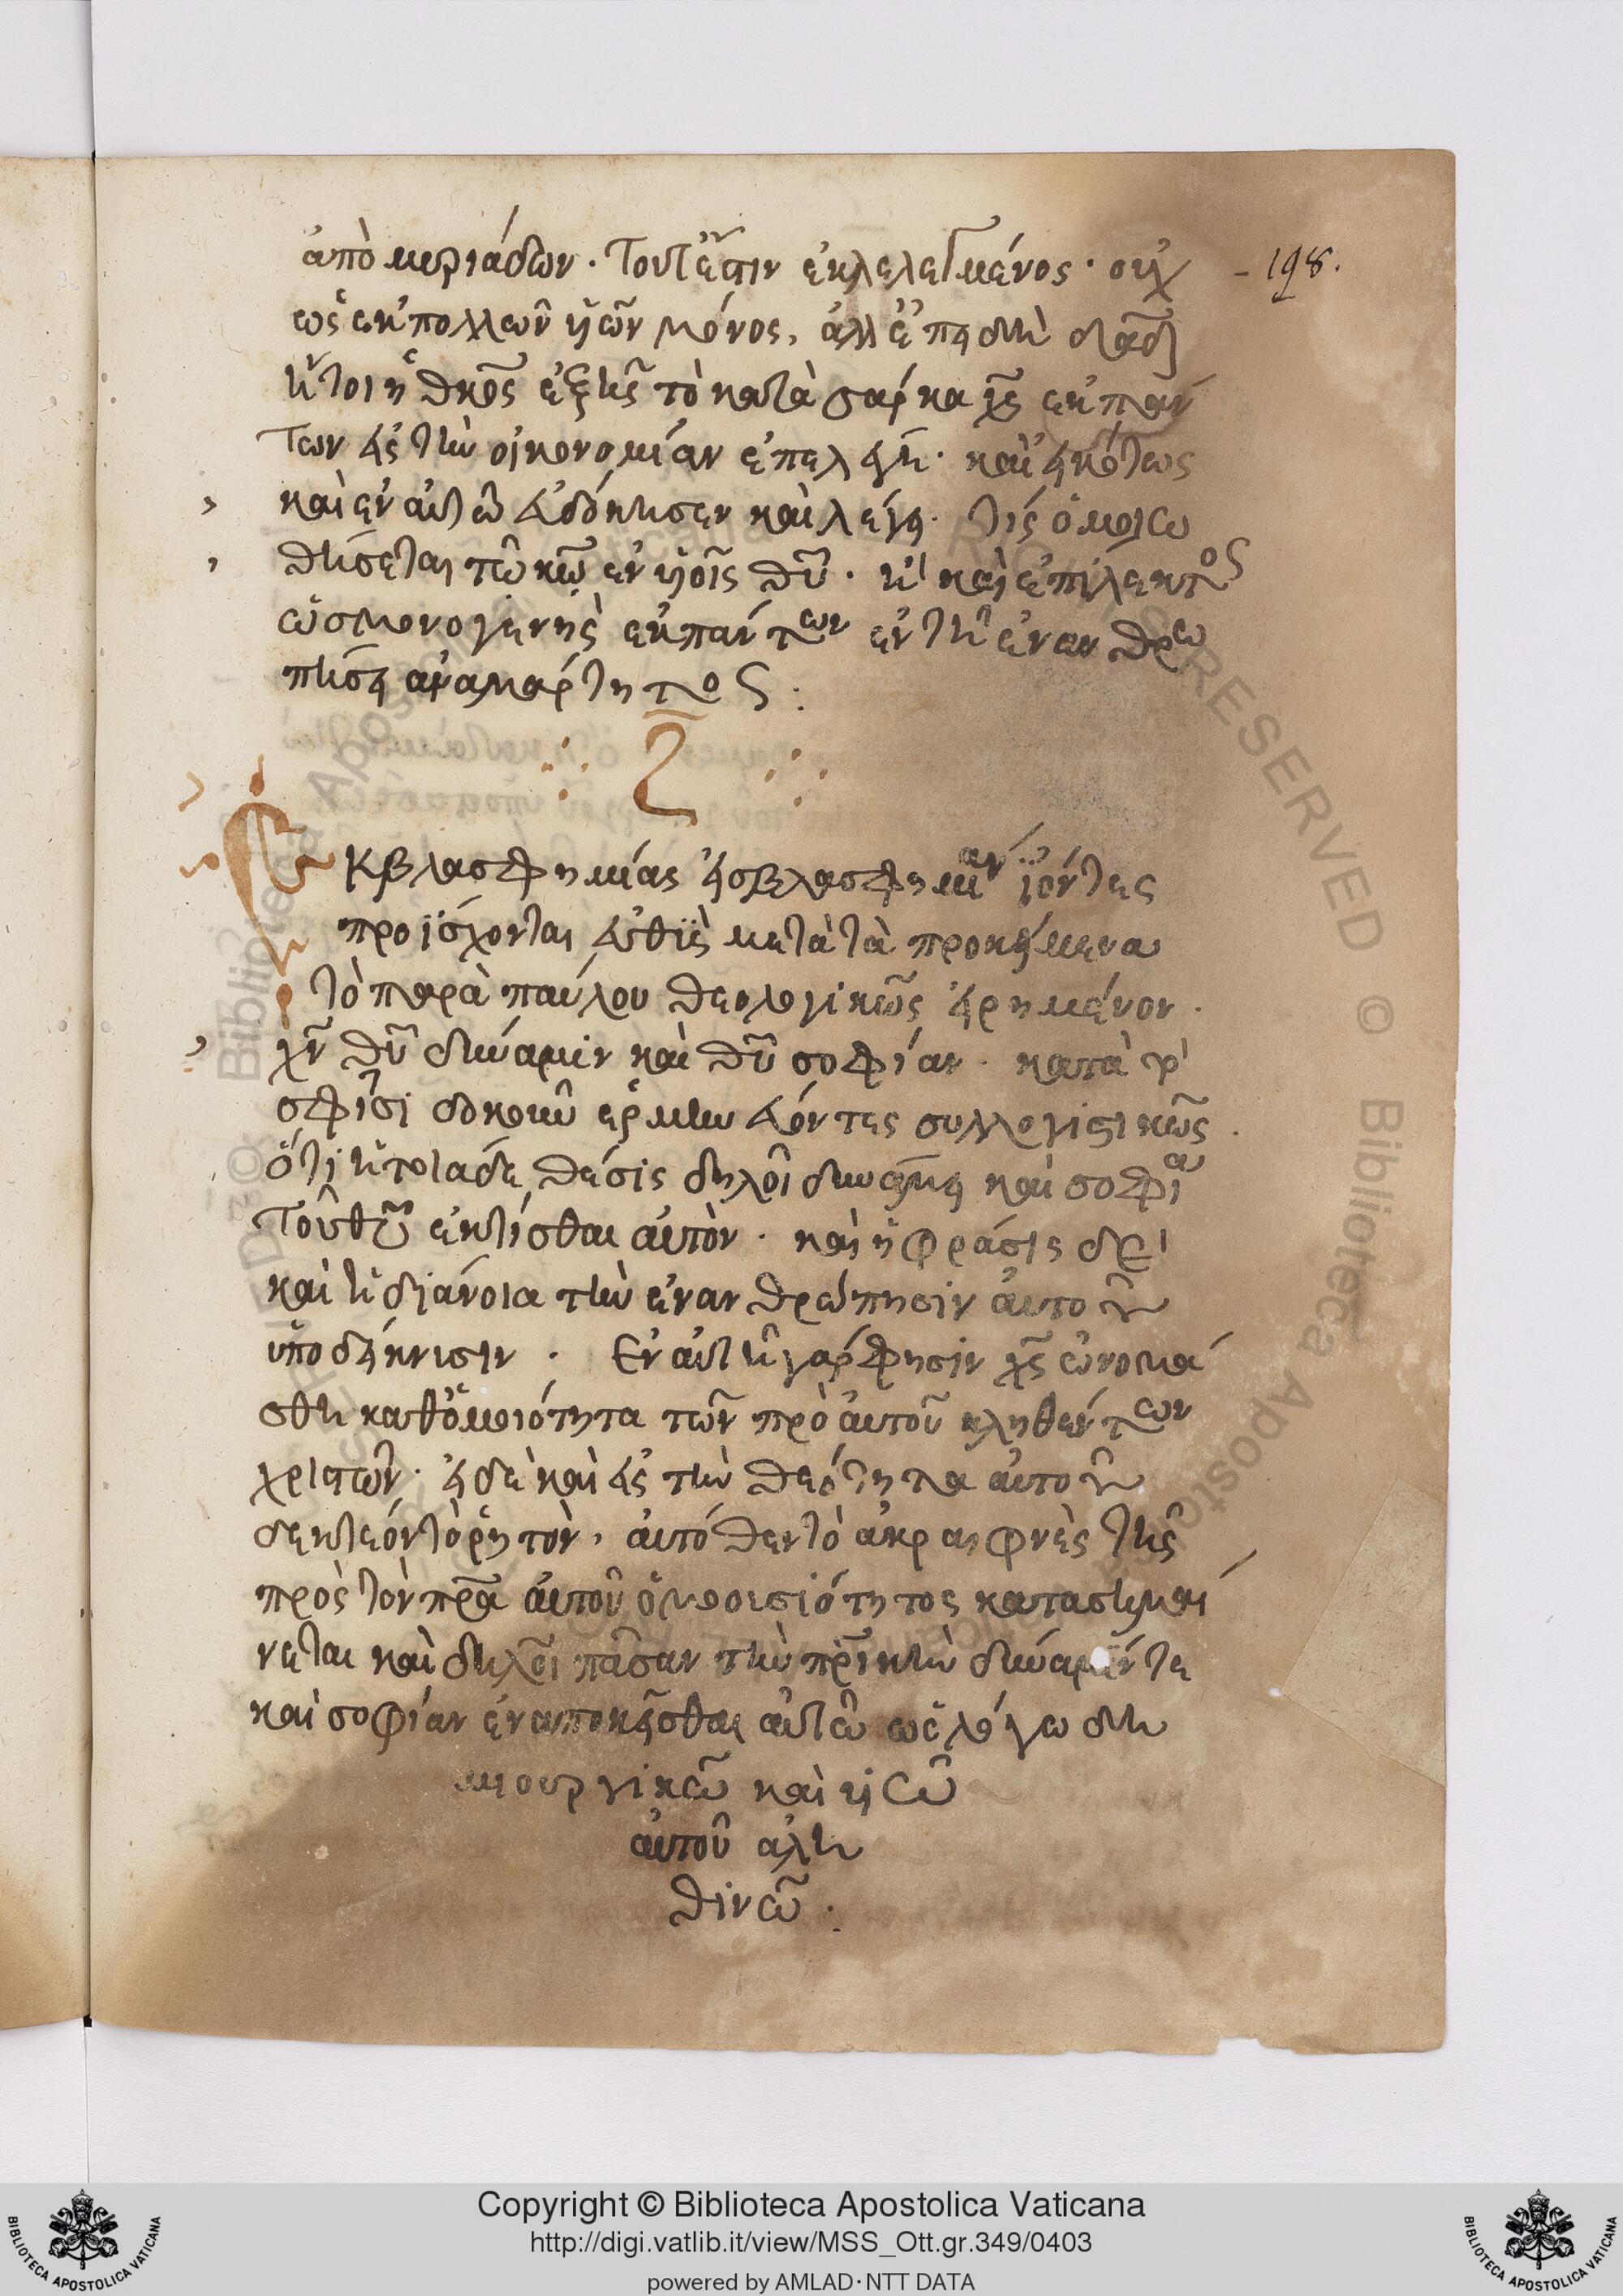 ἀπὸ μυριάδων · τουτέστιν ἐκλελεγμένος · οὐχ
ὡς ἐκ πολλῶν υἱῶν μόνος, ἀλλ' ἐπειδὴ
ἤτοι ἡ θκος ἐξ ἧς τὸ κατὰ σάρκα χς ἐκ πάν
των εἰς τὴν οἰκονομίαν ἐπελέγη · καὶ εἰκότως
καὶ ἐν αὐτῷ εὐδόκησεν καὶ λέγει · τίς ὁμοιω
θήσεται τῷ κω ἐν υἱοῖς θυ · ἢ καὶ ἐπίλεκτος
ὡς μονογενὴς ἐκ πάντων ἐν τῇ ἐνανθρω
πήσει ἀναμάρτητος :
Ζ
Ἐκ βλασφημίας εἰς βλασφημίαν ἰόντες
προΐσχονται αὖθις μετὰ τὰ προκείμενα
τὸ παρὰ παύλου θεολογικῶς εἰρημένον ·
χν θυ δύναμιν καὶ θυ σοφίαν · κατὰ τὸ
σφίσι δοκοῦν ἑρμηνεύοντες συλλογιστικῶς ·
ὅτι ἡ τοιάδε θέσις δηλοῖ δυνάμει καὶ σοφίᾳ
τοῦ θυ ἐκτίσθαι αὐτόν · καὶ ἡ φράσις
καὶ ἡ διάνοια τὴν ἐνανθρώπησιν αὐτοῦ
ὑποδείκνυσιν · Ἐν αὐτῇ γάρ φησιν χς ὠνομά
σθη καθ' ὁμοιότητα τῶν πρὸ αὐτοῦ κληθέντων
χριστῶν · εἰ δὲ καὶ εἰς τὴν θεότητα αὐτοῦ
δεκτέον τὸ ῥητόν, αὐτόθεν τὸ ἀκραιφνὲς τῆς
πρὸς τὸν πρα αὐτοῦ ὁμοουσιότητος κατασημαί
νεται καὶ δηλοῖ πᾶσαν τὴν πρικὴν δύναμίν τε
καὶ σοφίαν ἐναποκεῖσθαι αὐτῷ ὡς λόγῳ δη
μιουργικῷ καὶ υἱῷ
αὐτοῦ ἀλη
θινῷ :
198.
Copyright © Biblioteca Apostolica Vaticana
http://digi.vatlib.it/view/MSS_Ott.gr.349/0403
powered by AMLAD·NTT DATA
BIBLIOTECA APOSTOLICA VATICANA
BIBLIOTECA APOSTOLICA VATICANA